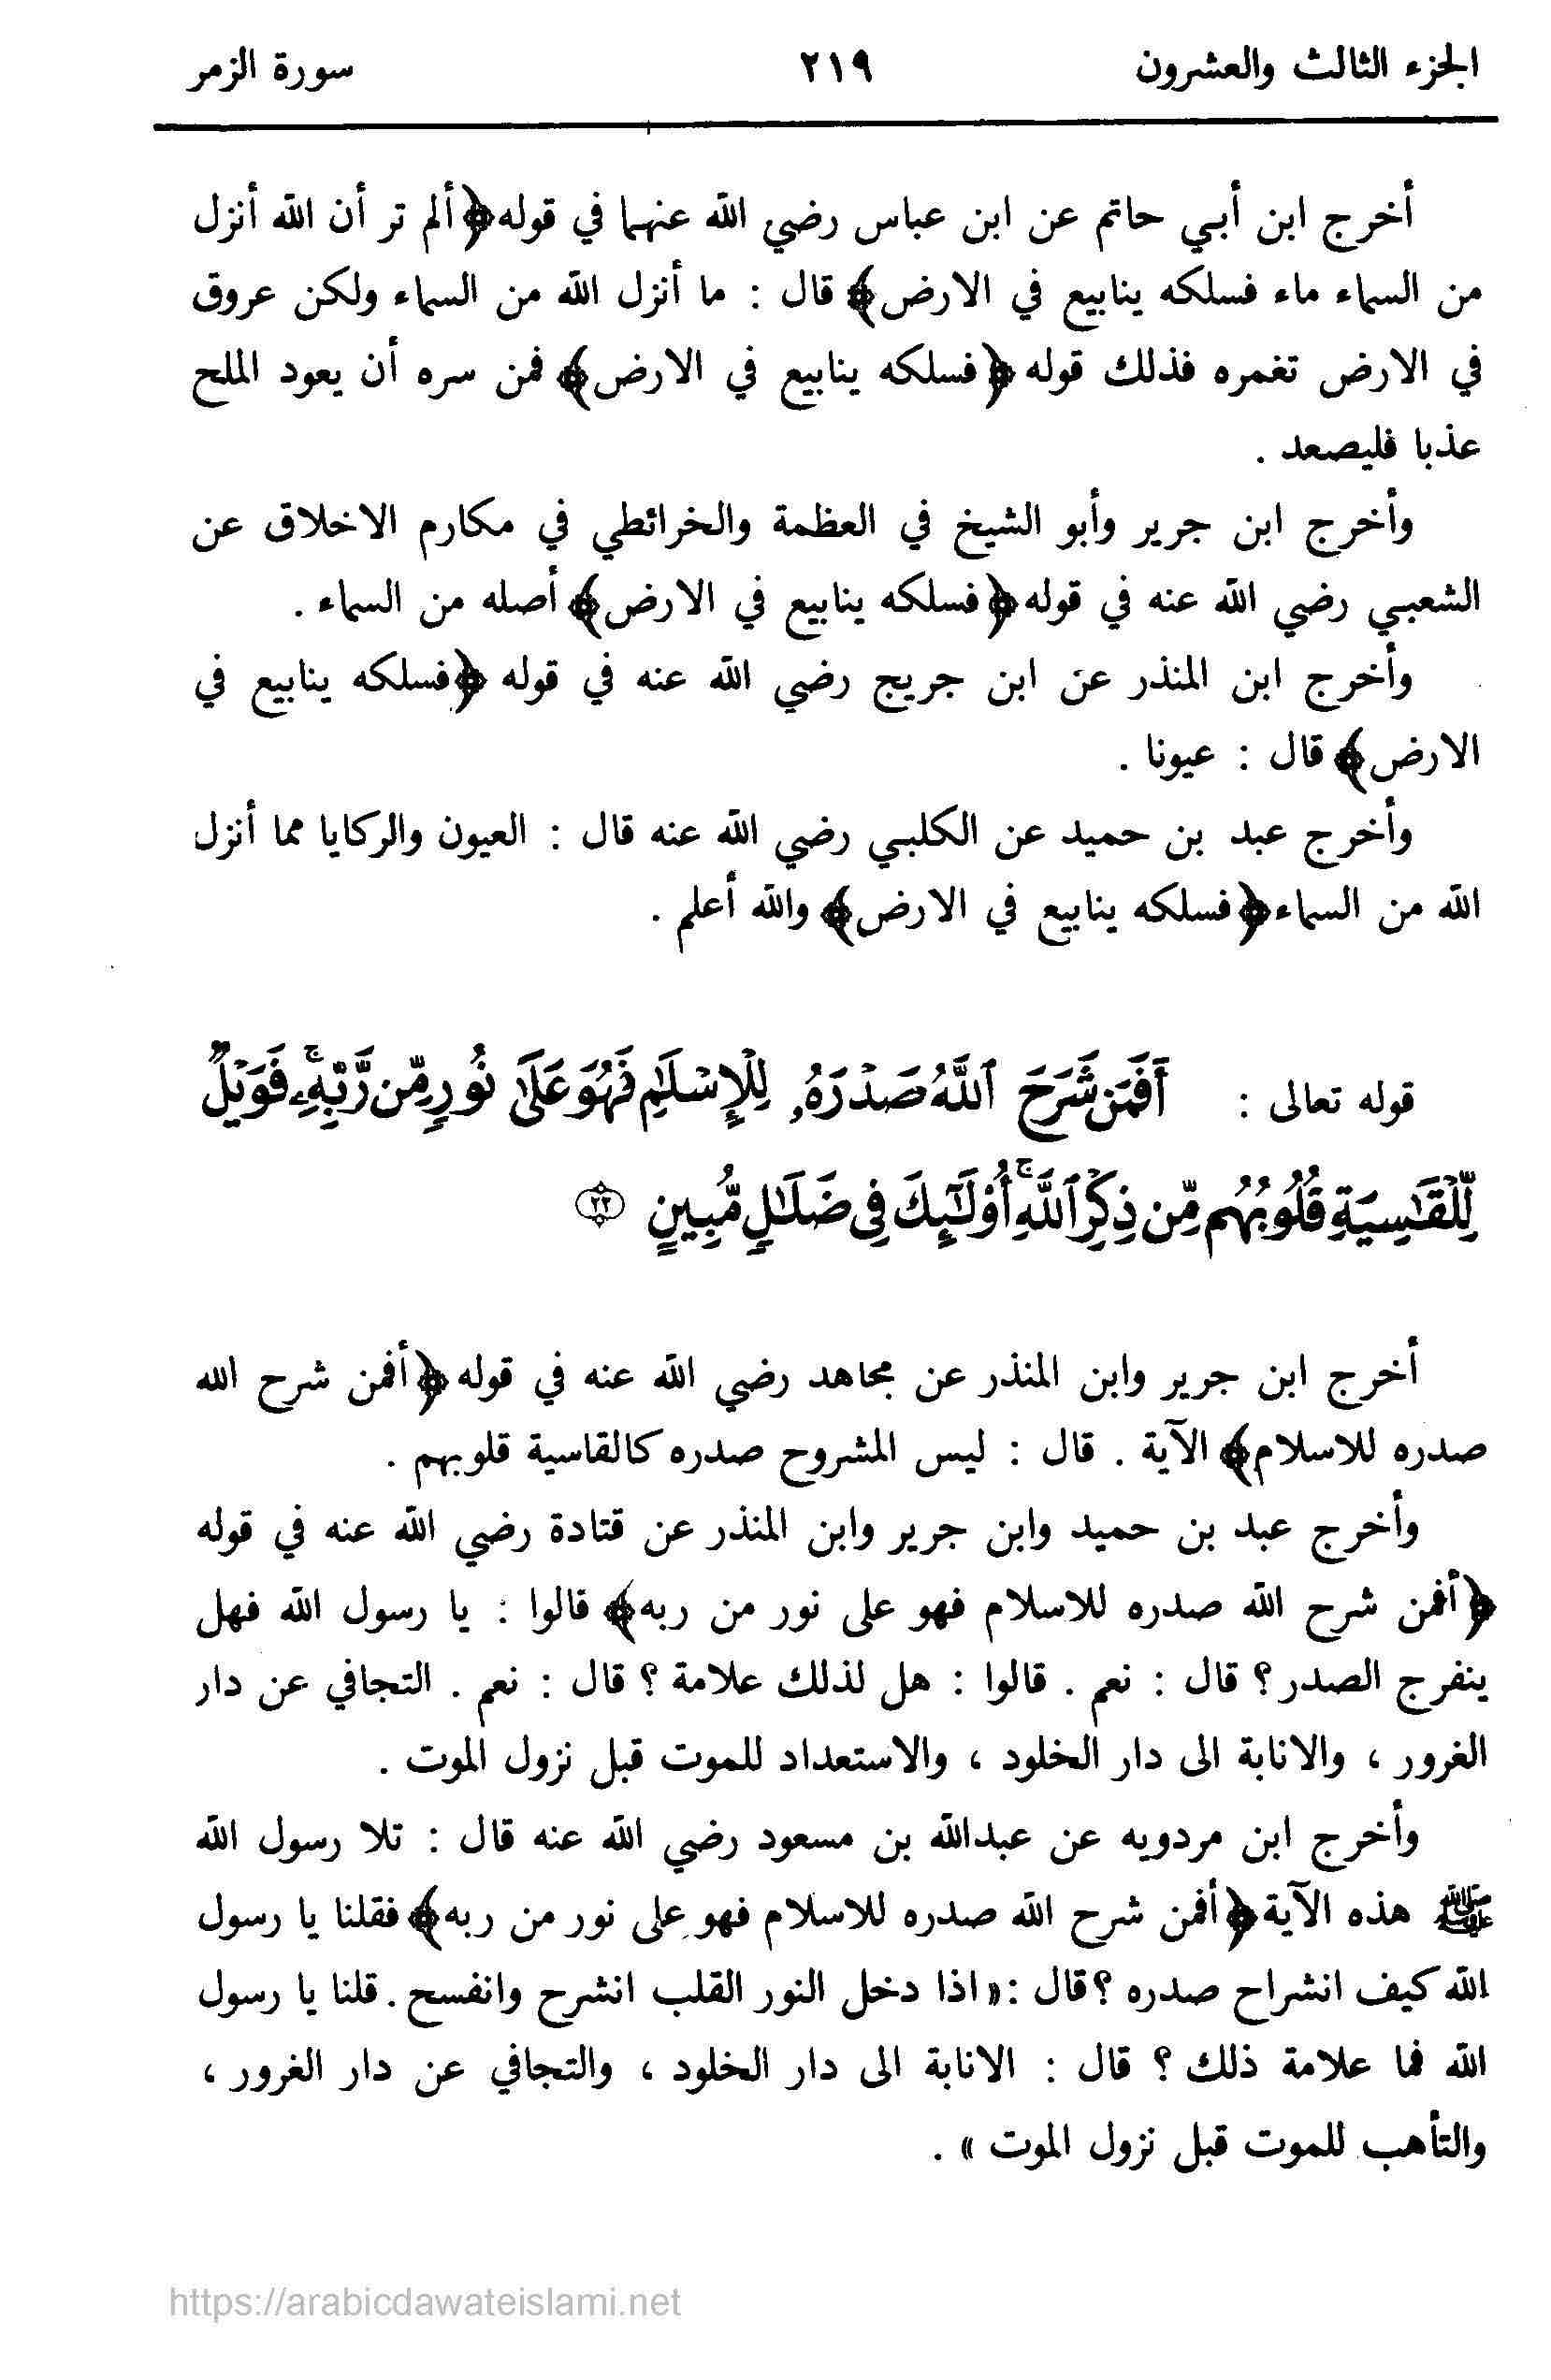 الجزء الثالث والعشرون ٢١٩ سورة الزمر
أخرج ابن أبي حاتم عن ابن عباس رضي الله عنهما في قوله ﴿ألم تر أن الله أنزل
من السماء ماء فسلكه ينابيع في الارض﴾ قال : ما أنزل الله من السماء ولكن عروق
في الارض تغمره فذلك قوله ﴿فسلكه ينابيع في الارض﴾ فمن سره أن يعود الملح
عذبا فليصعد .
وأخرج ابن جرير وأبو الشيخ في العظمة والخرائطي في مكارم الاخلاق عن
الشعبي رضي الله عنه في قوله ﴿فسلكه ينابيع في الارض﴾ أصله من السماء .
وأخرج ابن المنذر عن ابن جريج رضي الله عنه في قوله ﴿فسلكه ينابيع في
الارض﴾ قال : عيونا .
وأخرج عبد بن حميد عن الكلبي رضي الله عنه قال : العيون والركايا مما أنزل
الله من السماء ﴿فسلكه ينابيع في الارض﴾ والله أعلم .
قوله تعالى : أَفَمَن شَرَحَ ٱللَّهُ صَدْرَهُۥ لِلْإِسْلَٰمِ فَهُوَ عَلَىٰ نُورٍ مِّن رَّبِّهِۦۚ فَوَيْلٌ
لِّلْقَٰسِيَةِ قُلُوبُهُم مِّن ذِكْرِ ٱللَّهِۚ أُوْلَٰٓئِكَ فِى ضَلَٰلٍ مُّبِينٍ ٢٢
أخرج ابن جرير وابن المنذر عن مجاهد رضي الله عنه في قوله ﴿أفمن شرح الله
صدره للاسلام﴾ الآية . قال : ليس المشروح صدره كالقاسية قلوبهم .
وأخرج عبد بن حميد وابن جرير وابن المنذر عن قتادة رضي الله عنه في قوله
﴿أفمن شرح الله صدره للاسلام فهو على نور من ربه﴾ قالوا : يا رسول الله فهل
ينفرج الصدر ؟ قال : نعم . قالوا : هل لذلك علامة ؟ قال : نعم . التجافي عن دار
الغرور ، والانابة الى دار الخلود ، والاستعداد للموت قبل نزول الموت .
وأخرج ابن مردويه عن عبدالله بن مسعود رضي الله عنه قال : تلا رسول الله
ﷺ هذه الآية ﴿أفمن شرح الله صدره للاسلام فهو على نور من ربه﴾ فقلنا يا رسول
الله كيف انشراح صدره ؟ قال : « اذا دخل النور القلب انشرح وانفسح . قلنا يا رسول
الله فما علامة ذلك ؟ قال : الانابة الى دار الخلود ، والتجافي عن دار الغرور ،
والتأهب للموت قبل نزول الموت » .
https://arabicdawateislami.net